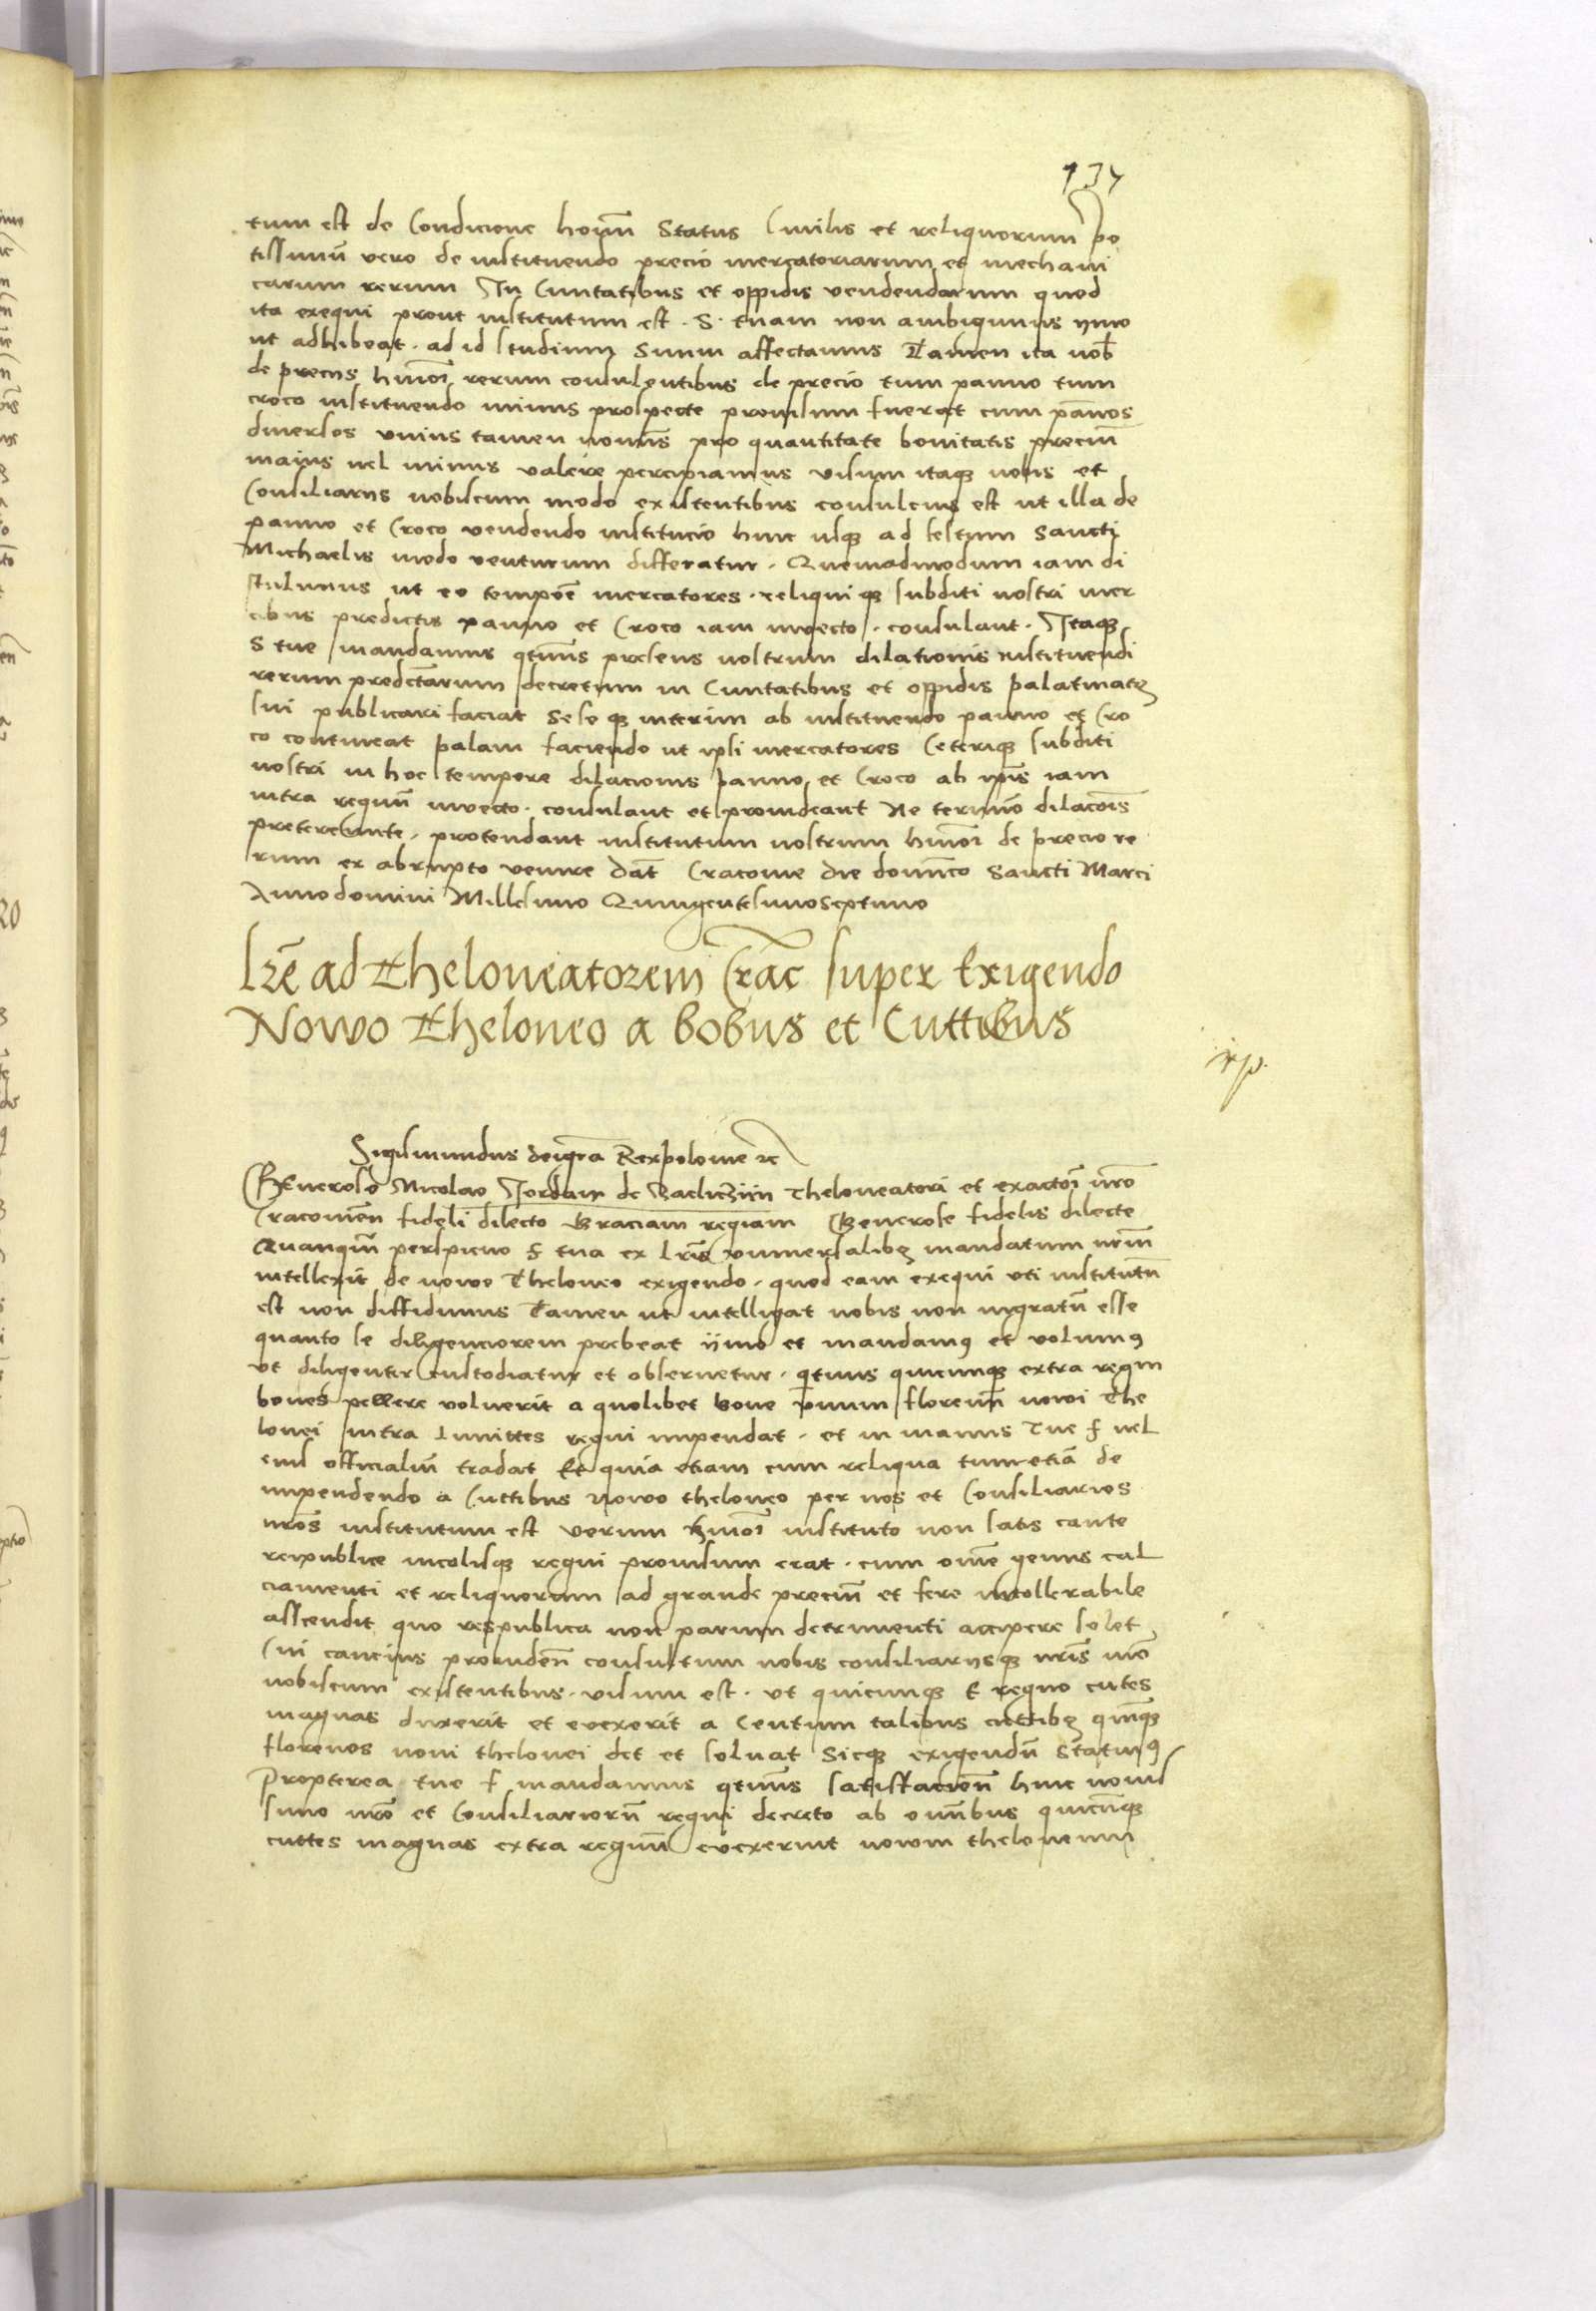 137
tum est de Condicione hoim̄ Status Ciuilis et reliquorum po
tissimū vero de instituendo precio mercatoriarum et mechani
carum rerum In Ciuitatibus et oppidis vendendarum quod
ita exequi prout institutum est . S. tuam non ambigimus ymo
ut adhibeat . ad id studium Suum affectamus Tamen ita nob̄
de precys hm̄oi rerum consulentibus de precio tum panno tum
croco instituendo minus prospecte prouisum fuerat cum pānos
diuersos vnius tamen nominis pro quantitate bonitatis preciū
maius uel minus valere percipiamus visum itaq nobis et
Consiliariis nobiscum modo existentibus consulcius est ut illa de
panno et Croco vendendo institucio hinc usq ad festum Sancti
Michaelis modo venturum differatur . Quemadmodum iam di
stulimus ut eo tempore mercatores . reliqui q subditi nostri mer
cibus predictis panno et Croco iam inuecto . consulant . Itaq
S tue mandamus qtin̄us presens nostrum dilationis instituendi
rerum predictarum decretum in Ciuitatibus et oppidis palatinatq
sui publicari faciat Sese q interim ab instituendo panno et Cro
co contineat palam faciendo ut ipsi mercatores Ceteriq subditi
nostri in hoc tempore dilacionis panno et Croco ab ip̄is iam
intra regnū inuecto . consulant et prouideant Ne termīo dilacōis
pretereunte . protendant institutum nostrum hm̄oi de precio re
rum ex abrupto venire Dat̄ Cracouie die dominco Sancti Marci
Anno domini Millesimo Quingentesimoseptimo
Lr̄e ad Theloneatorem Crac̄ super Exigendo
Nowo Theloneo a bobus et Cuttibus
Sigismundus dei gr̄a Rex polonie zc
GEneroso Nicolao Jordan de Zaclicziin Theloneatori et exactori nr̄o
Cracouien̄ fideli dilecto Graciam regiam Generose fidelis dilecte
Quanquā perspicuo f tua ex lr̄is vniuersalibq mandatum nr̄m
intellexit de nowo Theloneo exigendo . quod eam exequi vti institutū
est non diffidimus Tamen ut intelligat nobis non ingratū esse
quanto se diligenciorem prebeat ymo et mandamꝰ et volumꝰ
vt diligenter custodiatur et obseruetur . qtinus quicunq extra regm
boues pellere voluerit a quolibet boue vnum florenū nowi The
lonei intra limittes regni impendat . et in manus Tue f uel
eius officialiū tradat Et quia etiam cum reliqua tum etiā de
impendendo a Cuttibus nowo theloneo per nos et Consiliarios
nr̄os institutum est verum hm̄oi instituto non satis caute
reipublice incolisq regni prouisum erat . cum om̄e genus cal
ciamenti et reliquorum ad grande preciū et fere intollerabile
assendit quo respublica non parum detrimenti accipere solet
Cui caucius prouiden̄ consultum nobis consiliariisq nr̄is mō
nobiscum existentibus . visum est . vt quicunq E regno cutes
magnas duxerit et euexerit a Centum talibus cuttibq quinq
florenos noui thelonei det et soluat Sicq exigendū Statuimꝰ
Propterea tue f mandamus qtin̄us satisfacien̄ huic nouis
simo nr̄o et Consiliariorū regni decreto ab omn̄bus quicūq
cuttes magnas extra regnū euexerint nowm theloneum